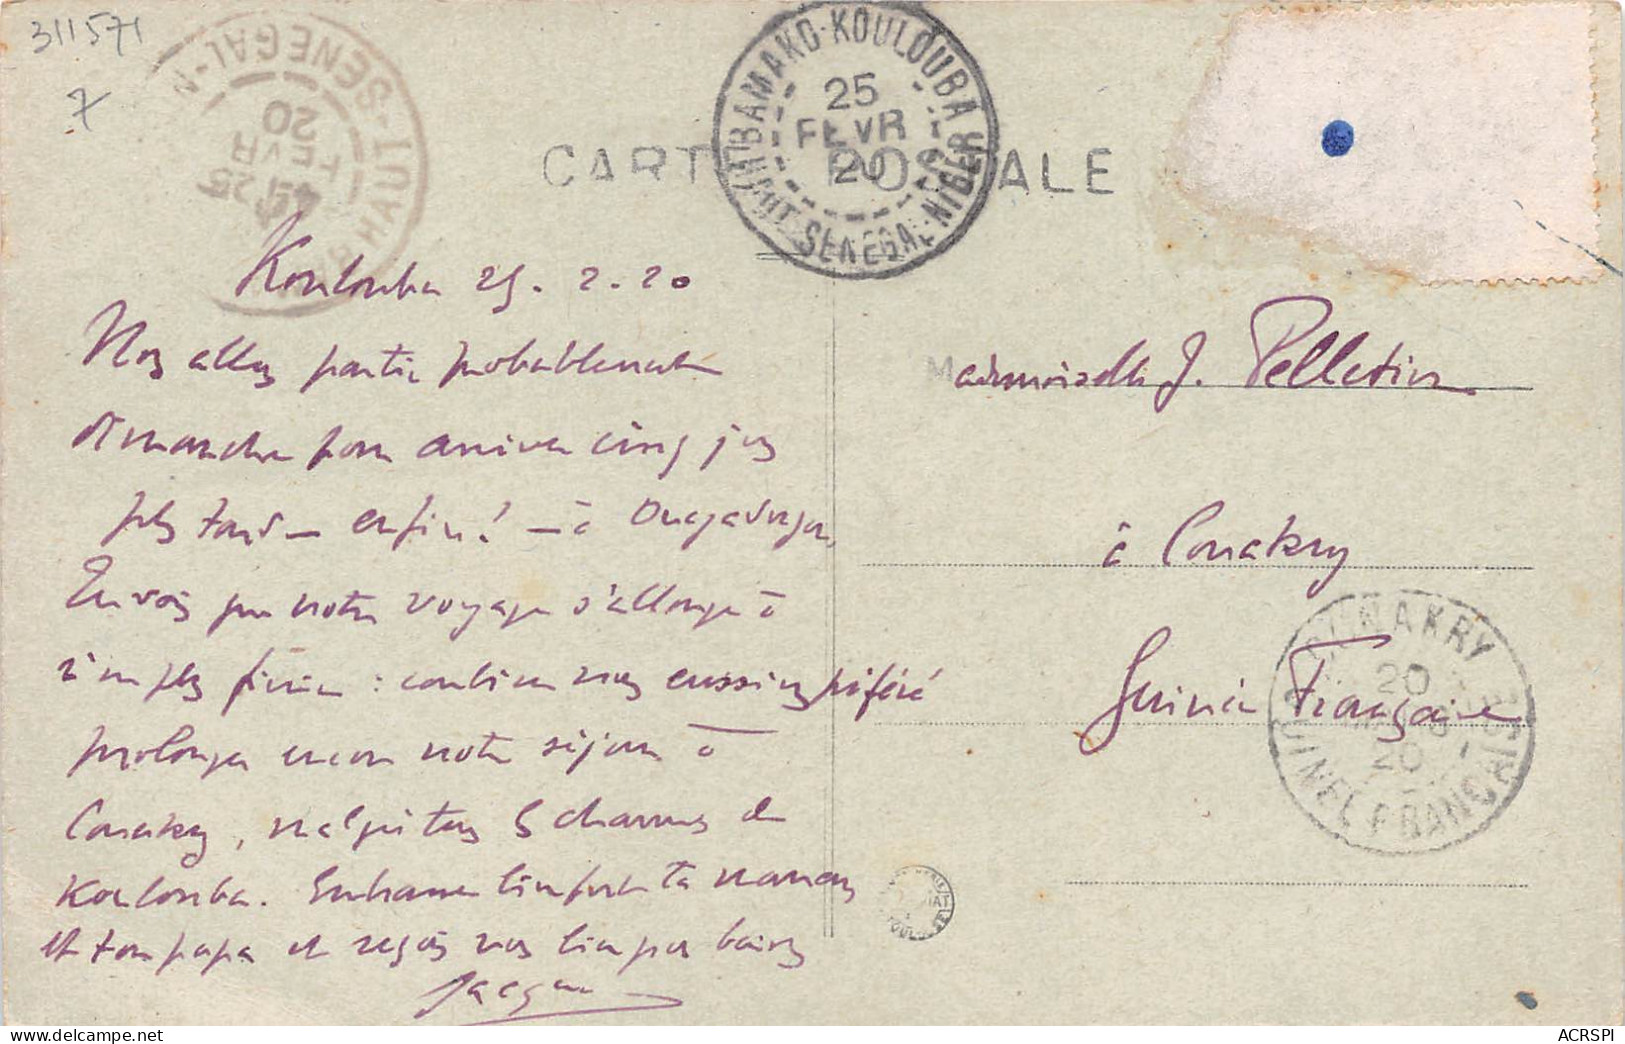 311571
7
HAUT-SENEGAL-N
25
FEVR
20
BAMAKO-KOULOUBA
25
FEVR
20
HAUT SENEGAL-NIGER
CARTE POSTALE
Koulouba 25.2.20
Nous allons partir probablement
dimanche pour arriver cinq jours
plus tard – enfin! – à Ouagadougou.
Tu vois que notre voyage s'allonge à
n'en plus finir : combien nous eussions préféré
prolonger encore notre séjour à
Conakry, malgré tous les charmes de
Koulouba. Embrasse bien fort ta maman
et ton papa et reçois nos bien gros baisers
Jacques
Mademoiselle J. Pelletier
à Conakry
Guinée Française
CONAKRY
20
20
GUINEE FRANCAISE
ACRSPI